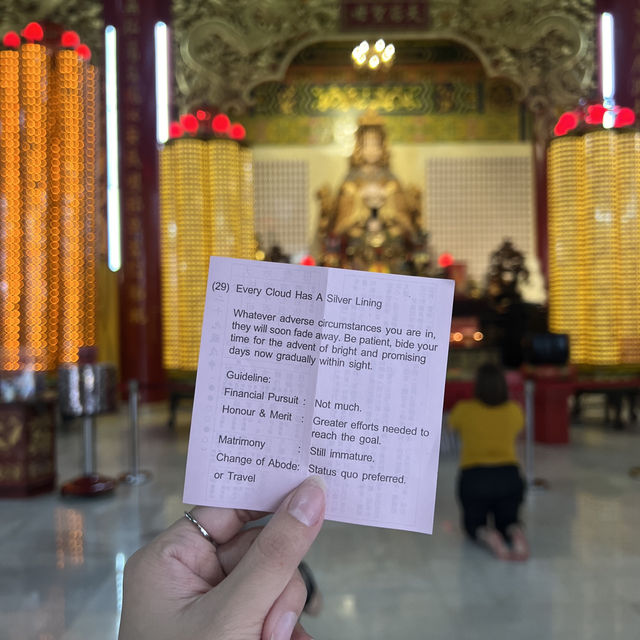 (29) Every Cloud Has A Silver Lining
Whatever adverse circumstances you are in,
they will soon fade away. Be patient, bide your
time for the advent of bright and promising
days now gradually within sight.
Guideline:
Financial Pursuit : Not much.
Honour & Merit : Greater efforts needed to
reach the goal.
Matrimony : Still immature.
Change of Abode: Status quo preferred.
or Travel